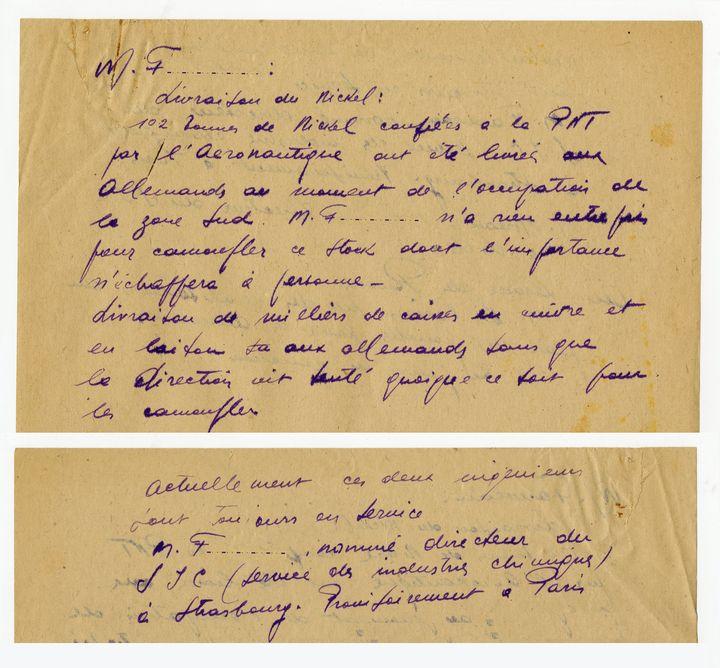 M. F............ :
Livraison du Nickel :
102 tonnes de Nickel confiées à la PNT
par l'Aéronautique ont été livrés aux
allemands au moment de l'occupation de
la zone Sud. M. F............ n'a rien entrepris
pour camoufler ce Stock dont l'importance
n'échappera à personne –
Livraison de milliers de caisses en cuivre et
en laiton aux allemands sans que
la Direction ait tenté quoique ce soit pour
les camoufler
Actuellement ces deux ingénieurs
sont toujours en service
M. F............ nommé directeur du
SIC (Service des industries chimiques)
à Strasbourg. Provisoirement à Paris